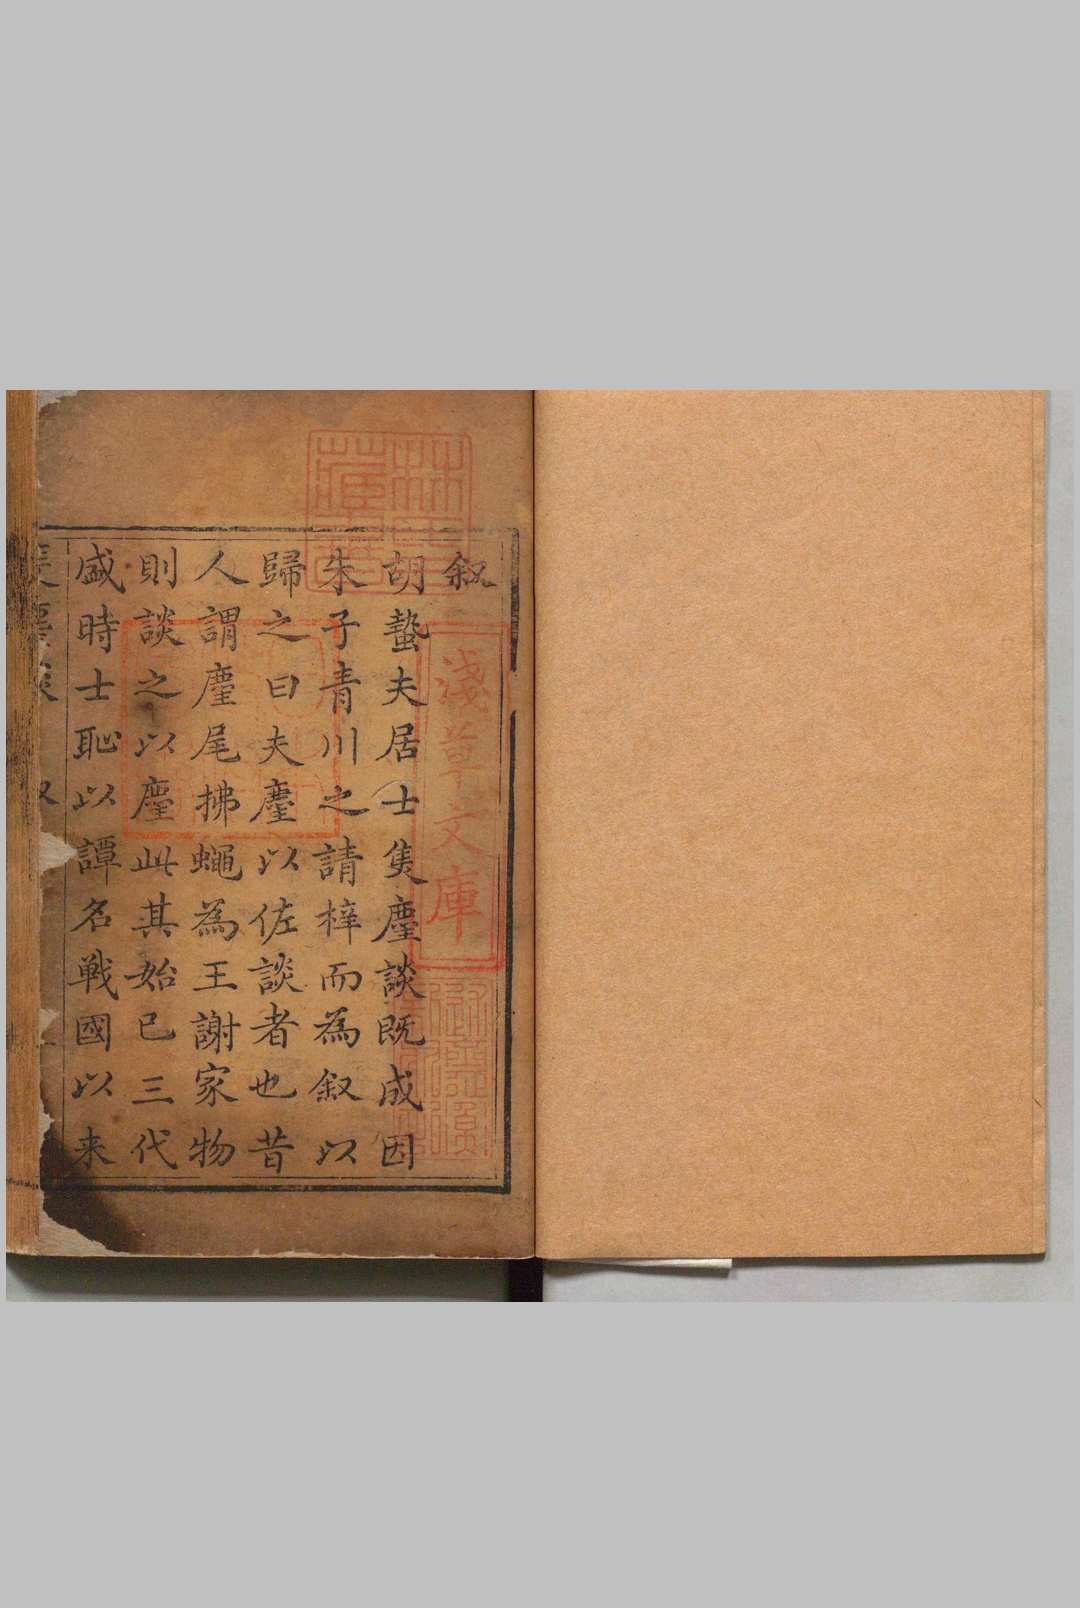 叙
胡蟄夫居士隻麈談既成因
朱子青川之請梓而為叙以
歸之曰夫麈以佐談者也昔
人謂麈尾拂蠅為王謝家物
則談之以麈此其始已三代
盛時士恥以譚名戦國以来
淺草文庫
林氏藏書